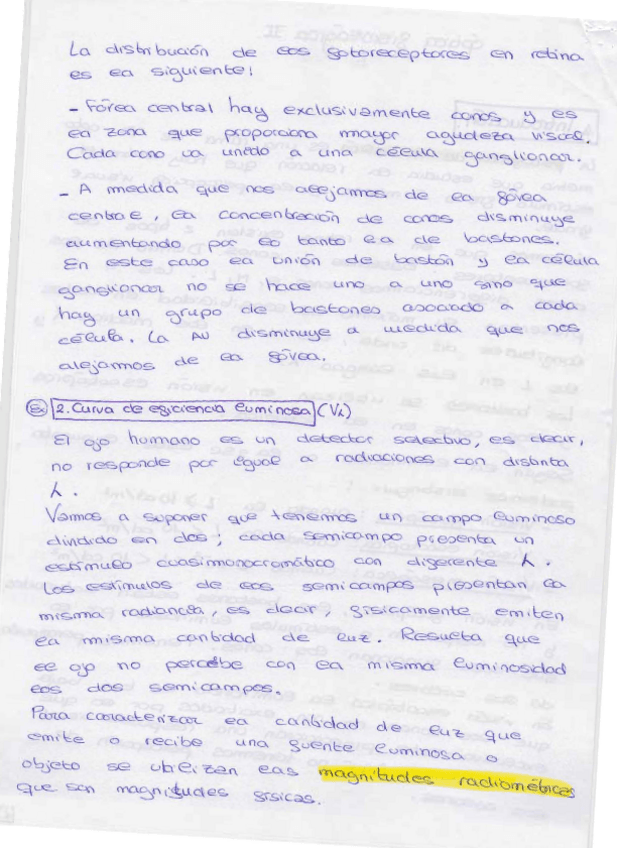 La distribución de los fotoreceptores en retina
es la siguiente:
- Fóvea central hay exclusivamente conos y es
la zona que proporciona mayor agudeza visual.
Cada cono va unido a una célula ganglionar.
- A medida que nos alejamos de la fóvea
central, la concentración de conos disminuye
aumentando por lo tanto la de bastones.
En este caso la unión de bastón y la célula
ganglionar no se hace uno a uno sino que
hay un grupo de bastones asociado a cada
célula. La AV disminuye a medida que nos
alejamos de la fóvea.
2. Curva de eficiencia luminosa (Vλ)
El ojo humano es un detector selectivo, es decir,
no responde por igual a radiaciones con distinta
λ.
Vamos a suponer que tenemos un campo luminoso
dividido en dos; cada semicampo presenta un
estímulo cuasimonocromático con diferente λ.
Los estímulos de los semicampos presentan la
misma radiancia, es decir, físicamente emiten
la misma cantidad de luz. Resulta que
el ojo no percibe con la misma luminosidad
los dos semicampos.
Para caracterizar la cantidad de luz que
emite o recibe una fuente luminosa o
objeto se utilizan las magnitudes radiométricas
que son magnitudes físicas.